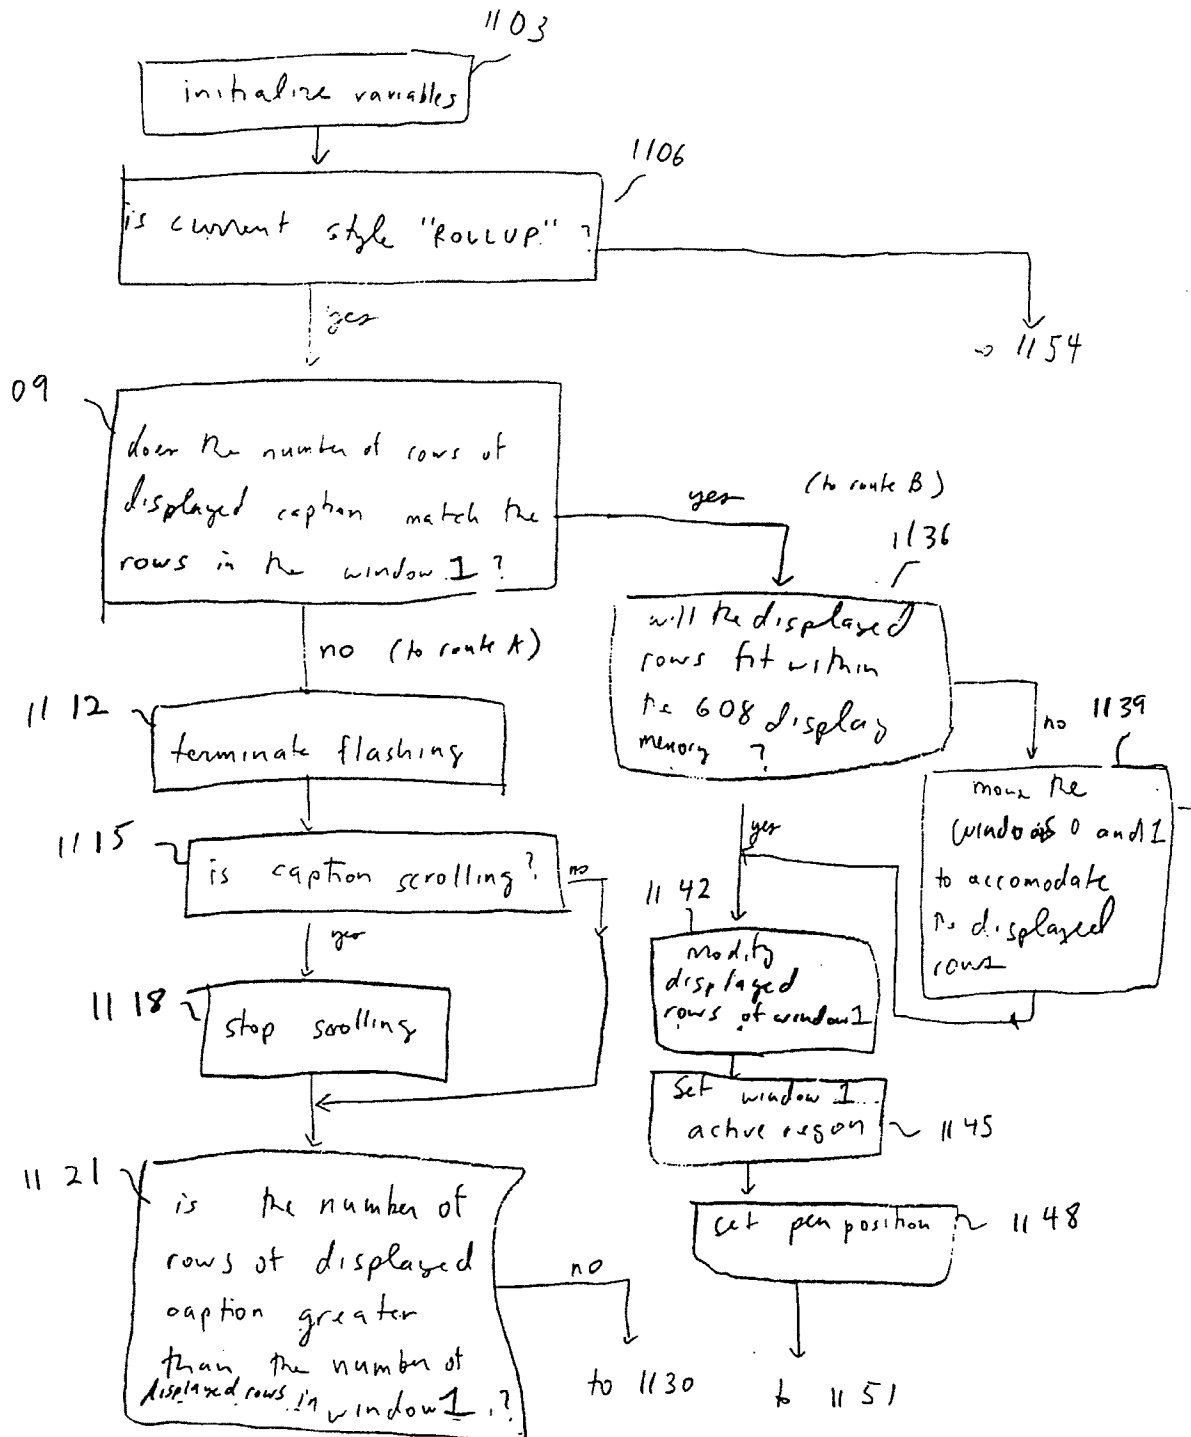 1103
initialize variables
1106
is current style "ROLLUP" ?
yes
→ 1154
09
does the number of rows of
displayed caption match the
rows in the window 1 ?
yes (to route B)
1136
no (to route A)
will the displayed
rows fit within
the 608 display
memory ?
no 1139
1112
terminate flashing
move the
windows 0 and 1
to accomodate
the displayed
rows
yes
1115
is caption scrolling? no
yes
1142
modify
displayed
rows of window 1
1118
stop scrolling
set window 1
active region
1145
1121
is the number of
rows of displayed
caption greater
than the number of
displayed rows in
window 1 ?
no
to 1130
set pen position
1148
to 1151